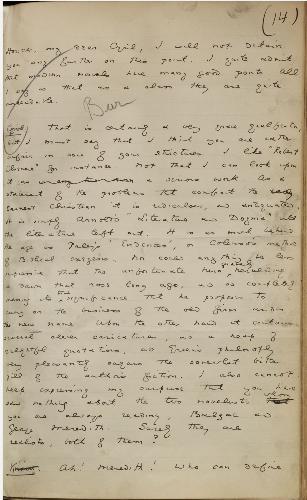 (14)
House, my dear Cyril, I will not detain
you any further on this point. I quite admit
that modern novels have many good points. All
I is that as a class they are quite
unreadable.
Cyril. That is certainly a very grave qualification,
but I must say that I think you are rather
unfair in some of your strictures. I like "Robert
Elsmere" for instance. Not that I can look upon
it as a serious work. As a
statement of the problems that confront the
earnest Christian it is ridiculous and antiquated.
It is simply Arnold's "Literature and Dogma" with
the literature left out. It is as much behind
the age as Paley's "Evidences", or Colenso's method
of Biblical exegesis. Nor could anything be less
impressive than the unfortunate hero gravely heralding
a dawn that rose long ago, and so completely
missing its significance that he proposes to
carry on the business of the old firm under
the new name. On the other hand it contains
several clever caricatures, and a heap of
delightful quotations, and Green's philosophy
very pleasantly sugars the somewhat bitter
pill of the author's fiction. I also cannot
help expressing my surprise that you have
said nothing about the two novelists whom
you are always reading, Balzac and
George Meredith. Surely they are
realists, both of them?
Ah! Meredith! Who can define